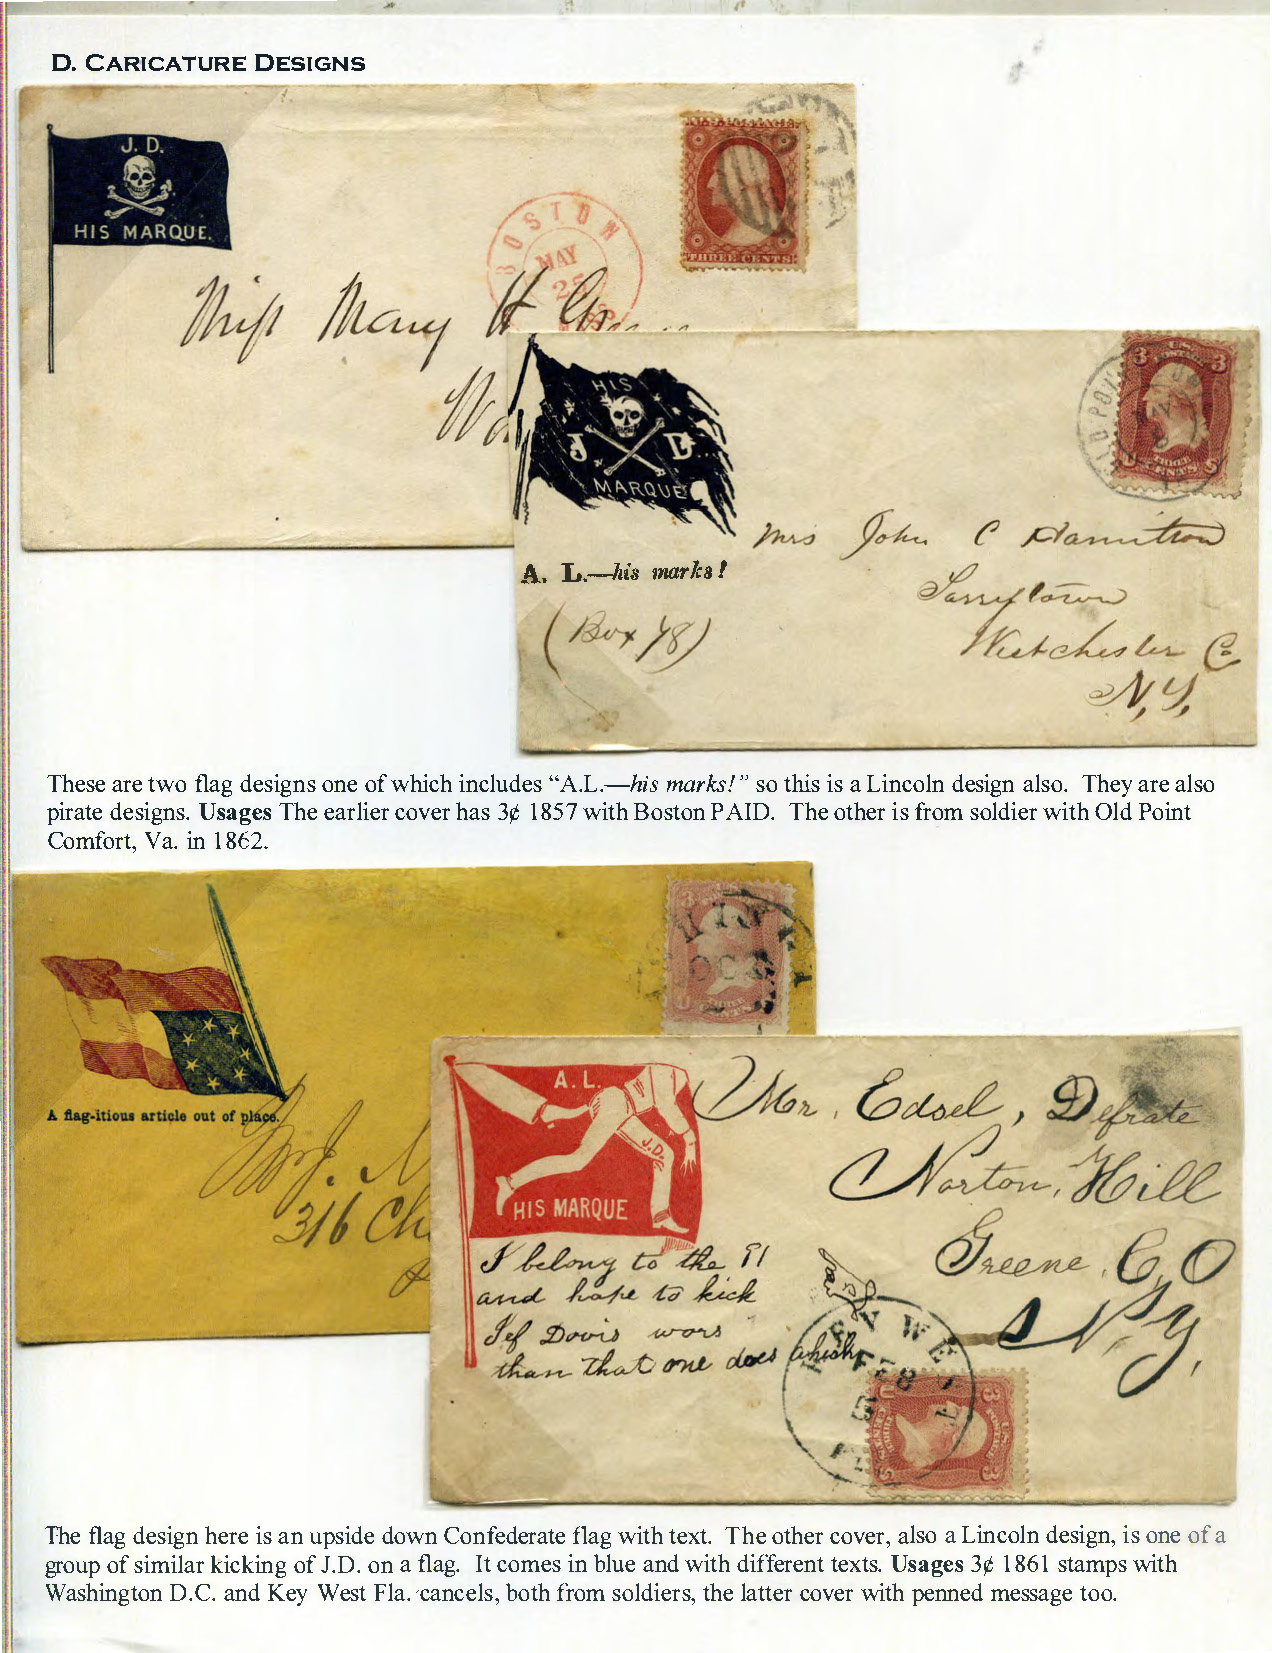 D. CARICATURE DESIGNS
J. D.
HIS MARQUE.
BOSTON
MAY
25
MASS
THREE CENTS
Miss Mary H
HIS
J D
MARQUE
A. L.—his marks!
(Box 48)
3 U.S. 3
POSTAGE
OLD POINT
MAY
U THREE CENTS S
Mrs John C Hamilton
Tarrytown
Westchester Co
N,Y,
These are two flag designs one of which includes “A.L.—his marks!” so this is a Lincoln design also. They are also
pirate designs. Usages The earlier cover has 3¢ 1857 with Boston PAID. The other is from soldier with Old Point
Comfort, Va. in 1862.
A flag-itious article out of place.
3
OCT
U THREE CENTS
316 Ch
A. L.
J.D.
HIS MARQUE
Mr, Edsel, Defrate
Norton, Hill
Greene, C,O
N,Y,
I belong to the 91
and hope to kick
Jef Davis wors
than that one does
KEY WEST
FEB
8
FLA
3 U.S. 3
POSTAGE
U THREE CENTS S
The flag design here is an upside down Confederate flag with text. The other cover, also a Lincoln design, is one of a
group of similar kicking of J.D. on a flag. It comes in blue and with different texts. Usages 3¢ 1861 stamps with
Washington D.C. and Key West Fla. cancels, both from soldiers, the latter cover with penned message too.